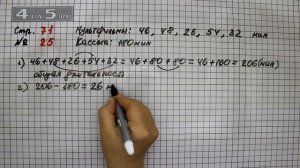 4 на 5
Стр. 71 Мультфильмы: 46, 48, 26, 54, 32 мин
№ 25 Кассета: 180 мин
1) 46+48+26+54+32 = 46+80+80 = 46+160 = 206 (мин)
общая длительность
2) 206 - 180 = 26 м